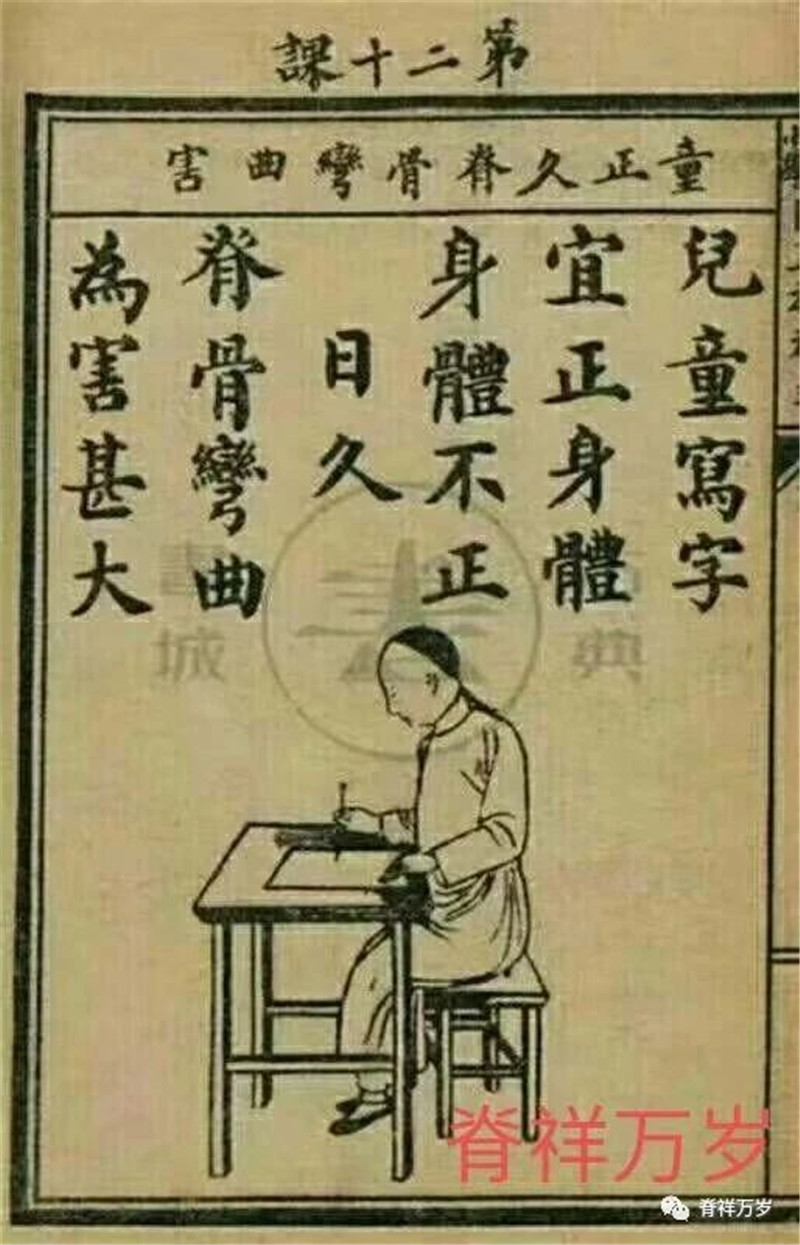 第二十課
童正久脊骨彎曲害
兒童寫字
宜正身體
身體不正
日久
脊骨彎曲
為害甚大
典
書城
脊祥万岁
脊祥万岁